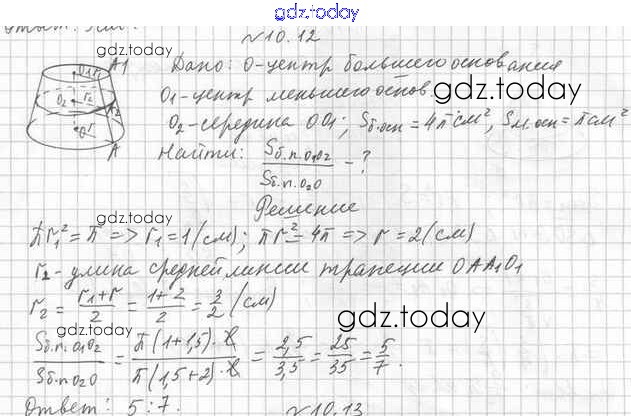 gdz.today
№10.12
gdz.today
A1
Дано: O-центр большего основания
O1-центр меньшего основ. gdz.today
O2-середина OO1; Sб.осн = 4π см², Sм.осн = π см²
Найти: Sб.п.O1O2 / Sб.п.O2O - ?
gdz.today
Решение
πr1² = π => r1 = 1 (см); πr² = 4π => r = 2 (см)
r2 - длина средней линии трапеции OAA1O1
r2 = (r1 + r)/2 = (1 + 2)/2 = 3/2 (см)
gdz.today
gdz.today
Sб.п.O1O2 / Sб.п.O2O = π(1 + 1,5)·ℓ / π(1,5 + 2)·ℓ = 2,5/3,5 = 25/35 = 5/7.
Ответ: 5:7.
№10.13